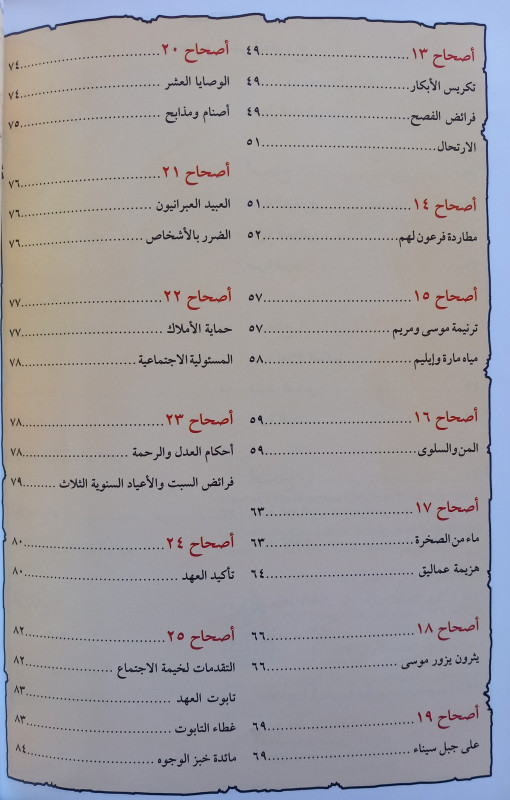 أصحاح ١٣..........٤٩
تكريس الأبكار..........٤٩
فرائض الفصح..........٤٩
الارتحال..........٥١
أصحاح ١٤..........٥١
مطاردة فرعون لهم..........٥٢
أصحاح ١٥..........٥٧
ترنيمة موسى ومريم..........٥٧
مياه مارة وإيليم..........٥٨
أصحاح ١٦..........٥٩
المن والسلوى..........٥٩
أصحاح ١٧..........٦٣
ماء من الصخرة..........٦٣
هزيمة عماليق..........٦٤
أصحاح ١٨..........٦٦
يثرون يزور موسى..........٦٦
أصحاح ١٩..........٦٩
على جبل سيناء..........٦٩
أصحاح ٢٠..........٧٤
الوصايا العشر..........٧٤
أصنام ومذابح..........٧٥
أصحاح ٢١..........٧٦
العبيد العبرانيون..........٧٦
الضرر بالأشخاص..........٧٦
أصحاح ٢٢..........٧٧
حماية الأملاك..........٧٧
المسئولية الاجتماعية..........٧٨
أصحاح ٢٣..........٧٨
أحكام العدل والرحمة..........٧٨
فرائض السبت والأعياد السنوية الثلاث..........٧٩
أصحاح ٢٤..........٨٠
تأكيد العهد..........٨٠
أصحاح ٢٥..........٨٢
التقدمات لخيمة الاجتماع..........٨٢
تابوت العهد..........٨٣
غطاء التابوت..........٨٣
مائدة خبز الوجوه..........٨٤